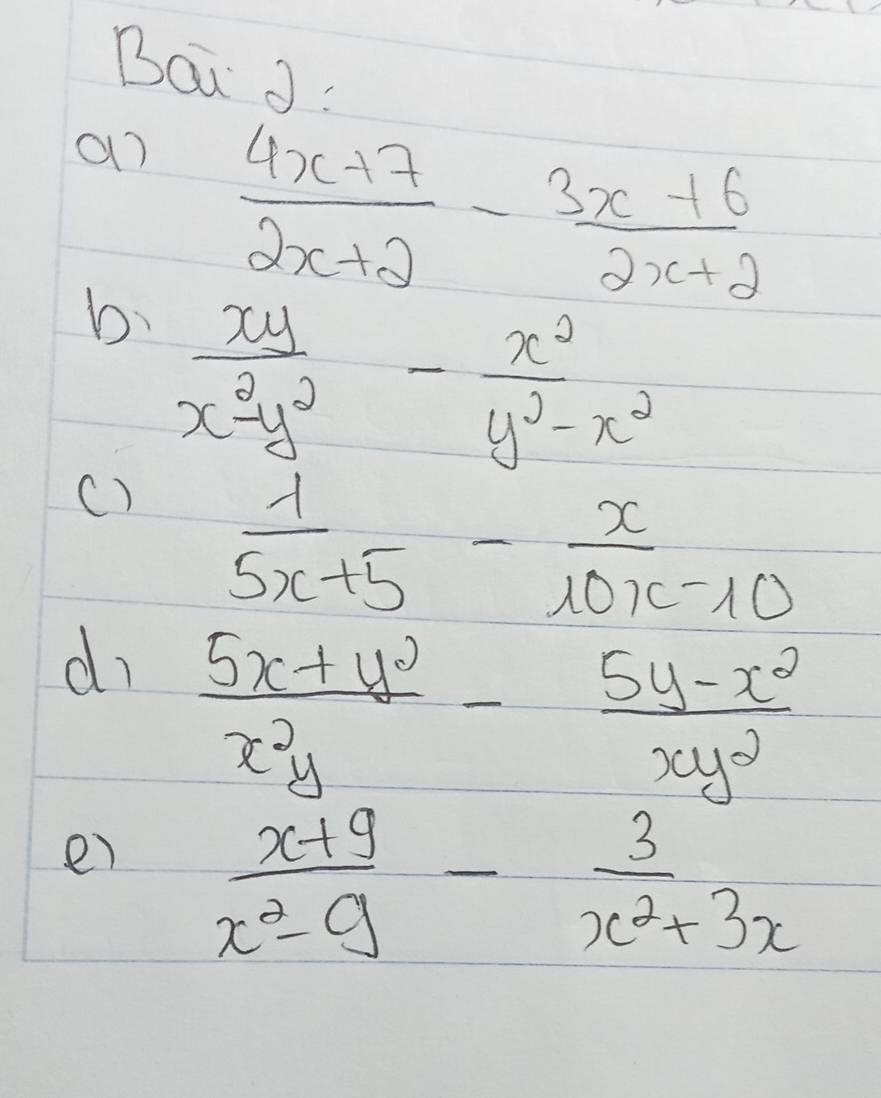 Bài 2:
a) \frac{4x+7}{2x+2} - \frac{3x+6}{2x+2}
b) \frac{xy}{x^2-y^2} - \frac{x^2}{y^2-x^2}
c) \frac{1}{5x+5} - \frac{x}{10x-10}
d) \frac{5x+y^2}{x^2y} - \frac{5y-x^2}{xy^2}
e) \frac{x+9}{x^2-9} - \frac{3}{x^2+3x}